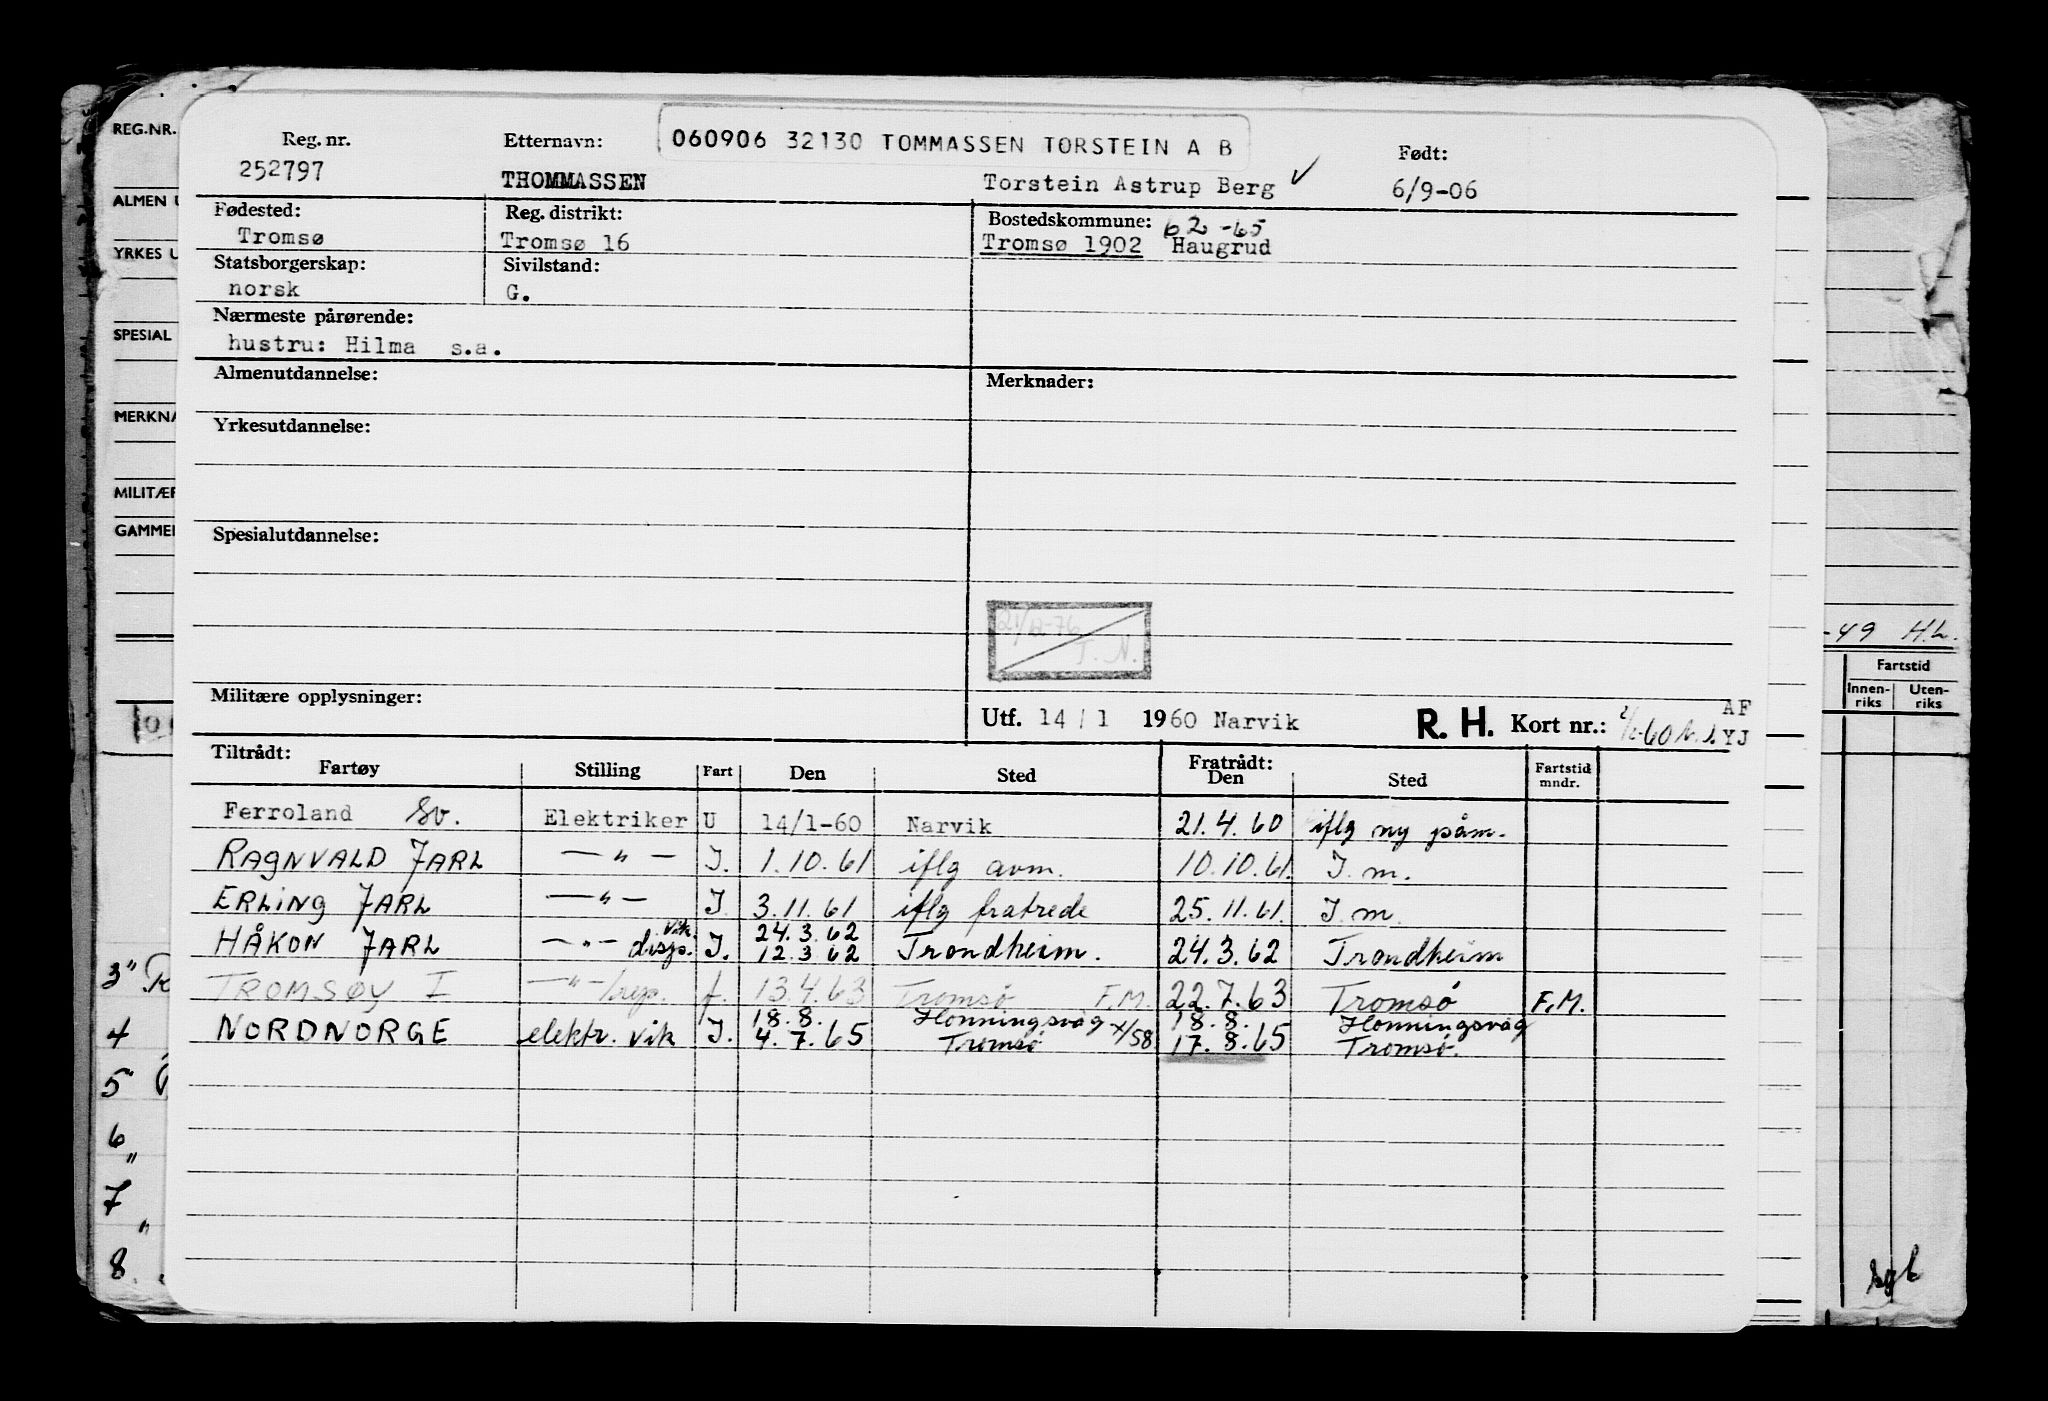 REG.NR.
ALMEN U
YRKES U
SPESIAL
MERKNA
MILITÆR
GAMMEL
Reg. nr. Etternavn: 060906 32130 TOMMASSEN TORSTEIN A B Født:
252797 THOMMASSEN Torstein Astrup Berg ✓ 6/9-06
Fødested: Reg. distrikt: Bostedskommune: 62-65
Tromsø Tromsø 16 Tromsø 1902 Haugrud
Statsborgerskap: Sivilstand:
norsk G.
Nærmeste pårørende:
hustru: Hilma s.a.
Almenutdannelse: Merknader:
Yrkesutdannelse:
Spesialutdannelse:
21/12-76
T. N.
Militære opplysninger:
Utf. 14/1 1960 Narvik R. H. Kort nr.: AF
YJ
Tiltrådt: Fratrådt:
Fartøy Stilling Fart Den Sted Den Sted Fartstid mndr.
Ferroland Sv. Elektriker U 14/1-60 Narvik 21.4.60 iflg ny påm.
RAGNVALD JARL —"— I. 1.10.61 iflg avm. 10.10.61. I. m.
ERLING JARL —"— I 3.11.61 iflg fratrede 25.11.61. I. m.
vik. 24.3.62
HÅKON JARL —"— disp. I. 12.3.62 Trondheim. 24.3.62 Trondheim
TROMSØY I —"—/rep. f. 13.4.63 Tromsø F.M. 22.7.63 Tromsø F.M.
18.8. Honningsvåg 18.8. Honningsvåg
NORDNORGE elektr. vik I. 4.7.65 Tromsø x/58 17.8.65 Tromsø.
-49 H.L.
Fartstid
Innenriks Utenriks
3"
4
5"
6
"
7
"
8.